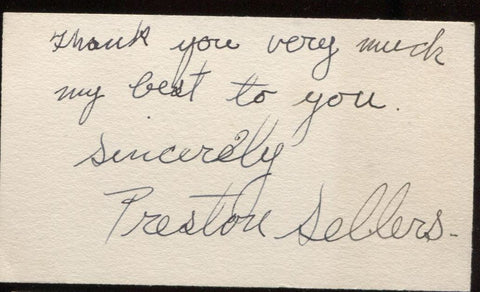 Thank you very much
my best to you.
Sincerely
Preston Sellers-